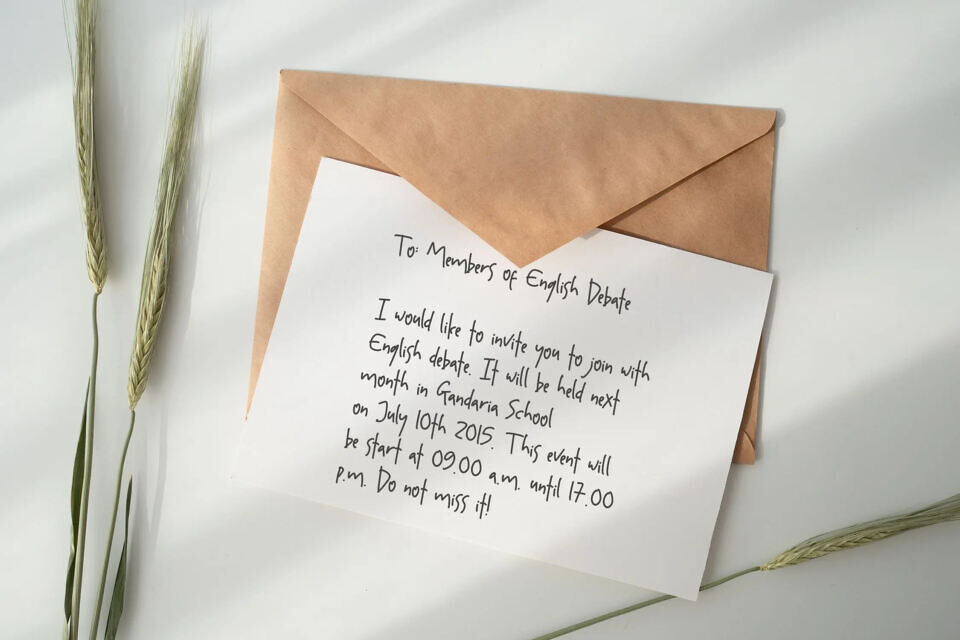 To: Members of English Debate
I would like to invite you to join with
English debate. It will be held next
month in Gandaria School
on July 10th 2015. This event will
be start at 09.00 a.m. until 17.00
p.m. Do not miss it!